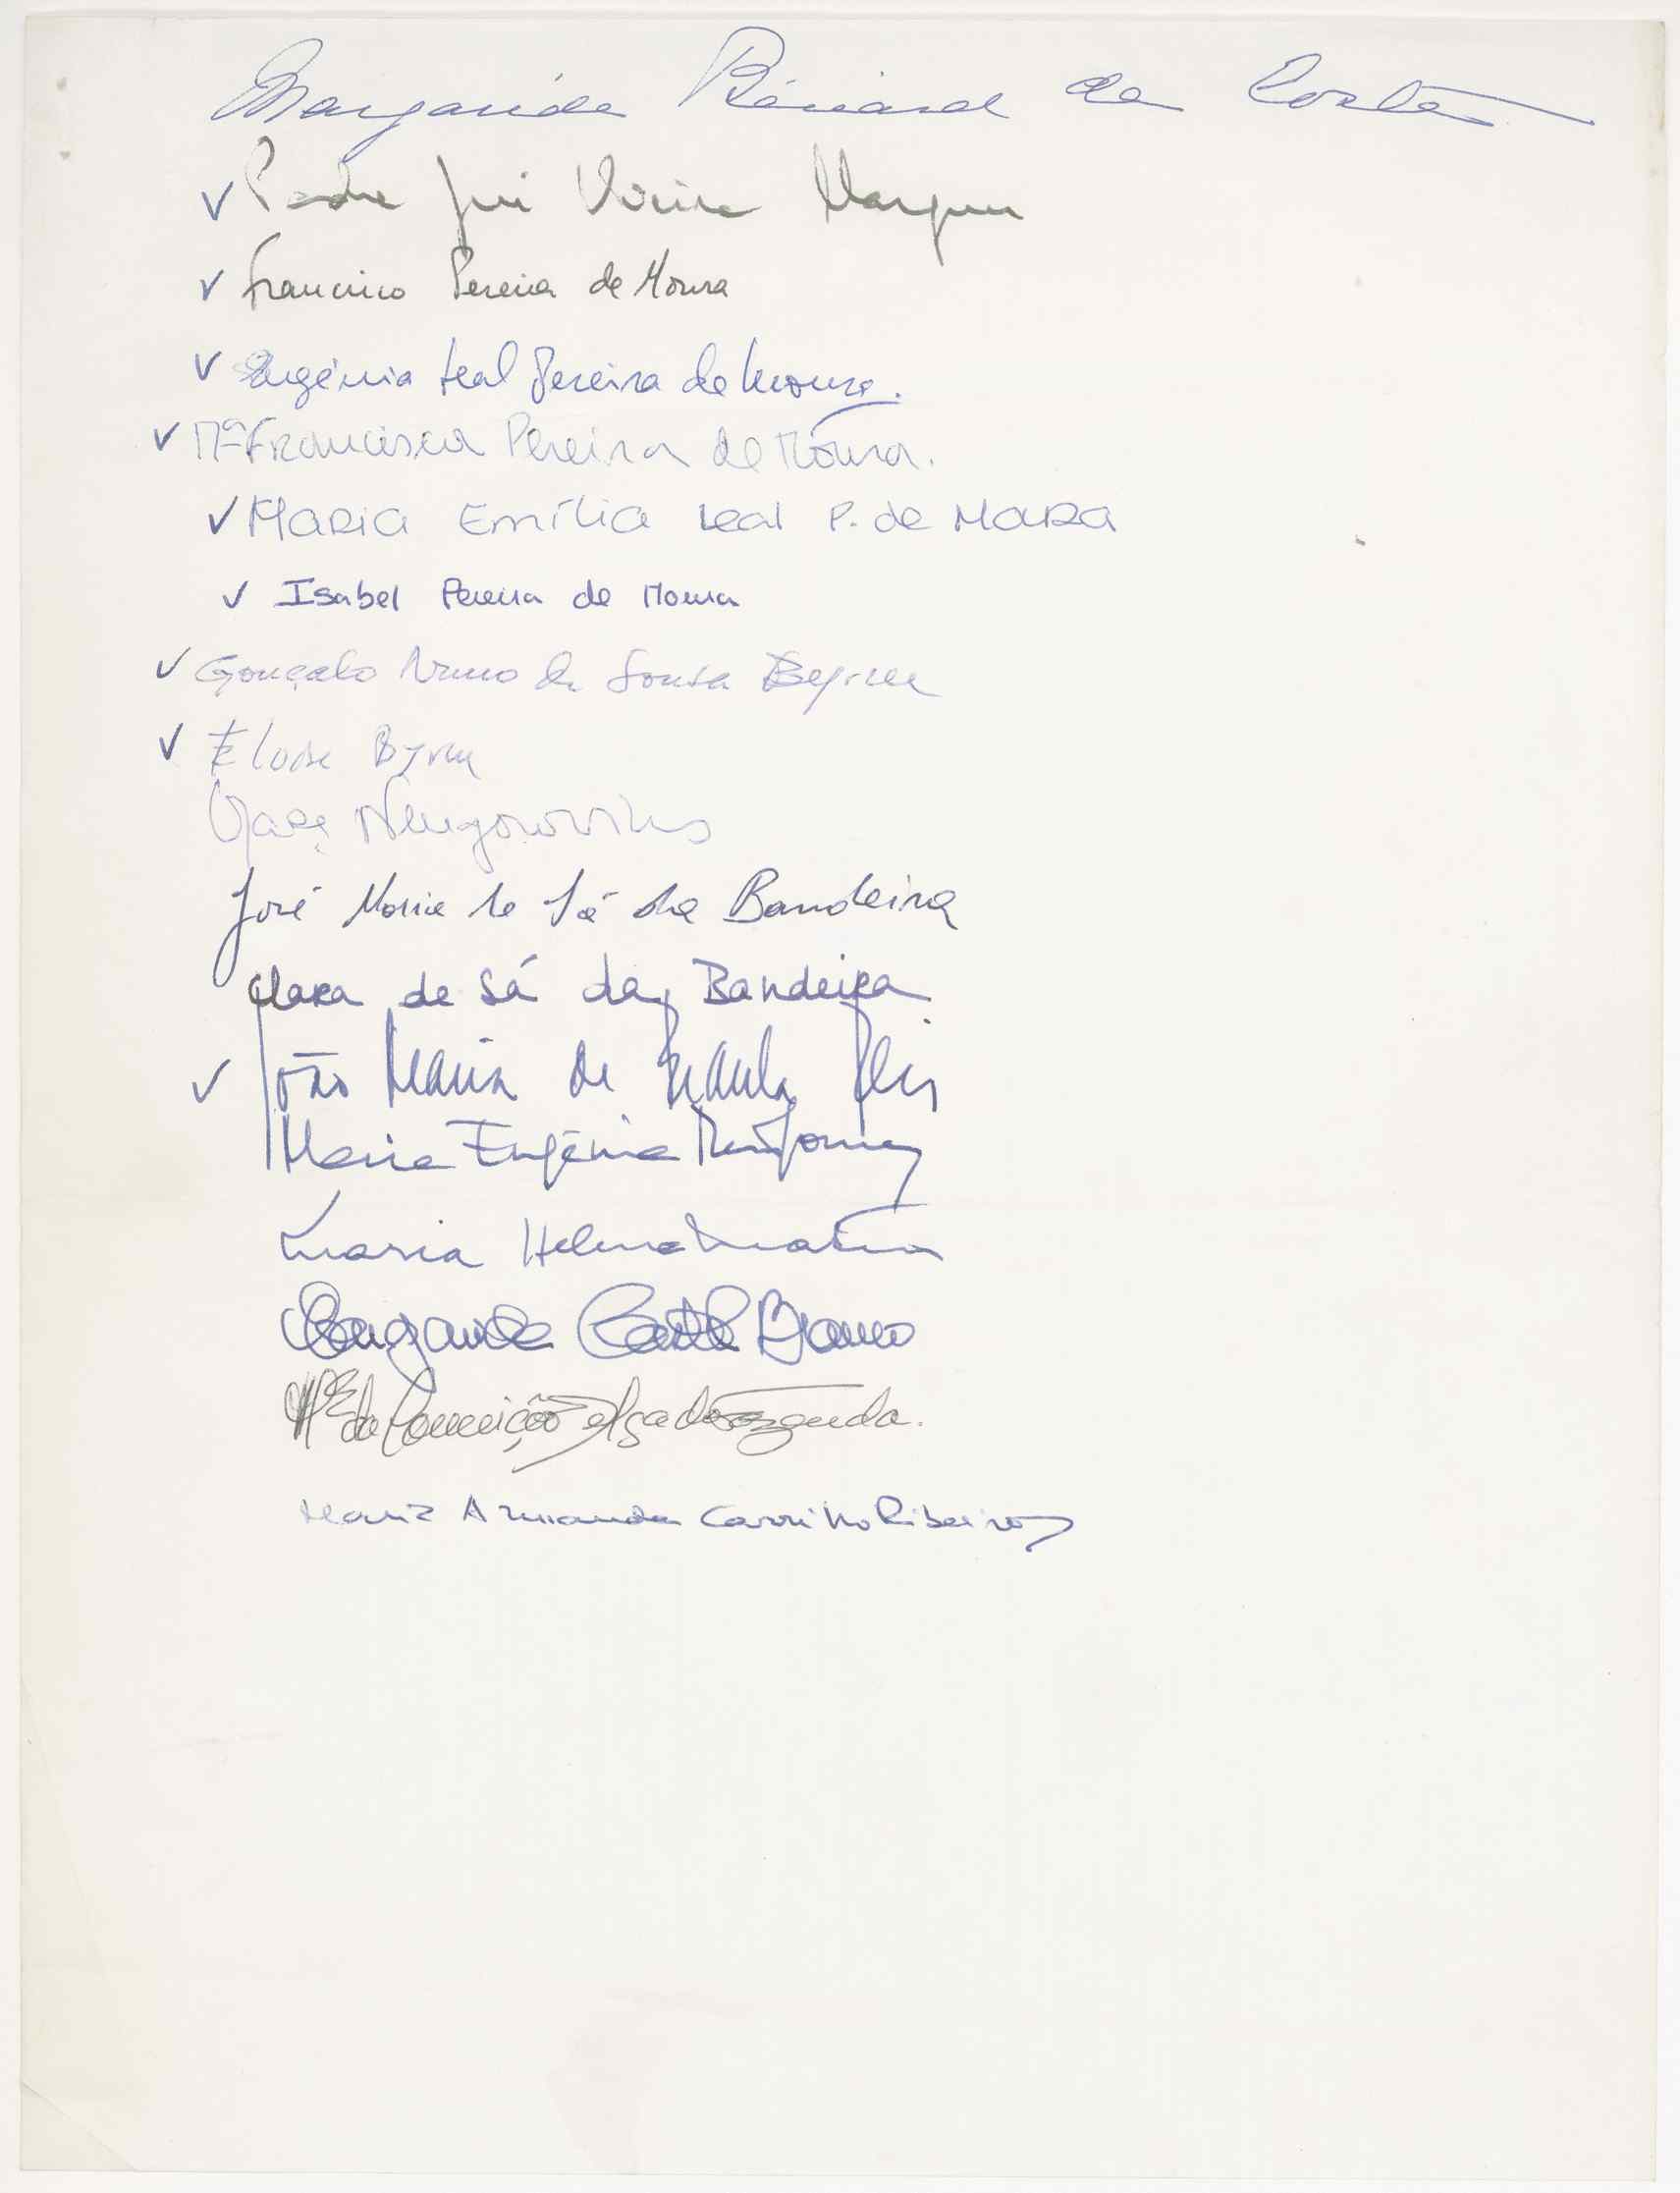 Margarida Bénard da Costa
✓ Padre José Vieira Marques
✓ Francisco Pereira de Moura
✓ Eugénia Leal Pereira de Moura.
✓ Mª Francisca Pereira de Moura.
✓ Maria Emília Leal P. de Moura
✓ Isabel Pereira de Moura
✓ Gonçalo Nuno de Sousa Byrne
✓ Eloise Byrne
Nengorovitch
José Maria de Sá da Bandeira
Clara de Sá da Bandeira
✓ João Maria de Paula
Maria Eugénia
Maria Helena
Margarida Castelo Branco
Mª da Conceição
Maria Armanda Carrilho Ribeiro